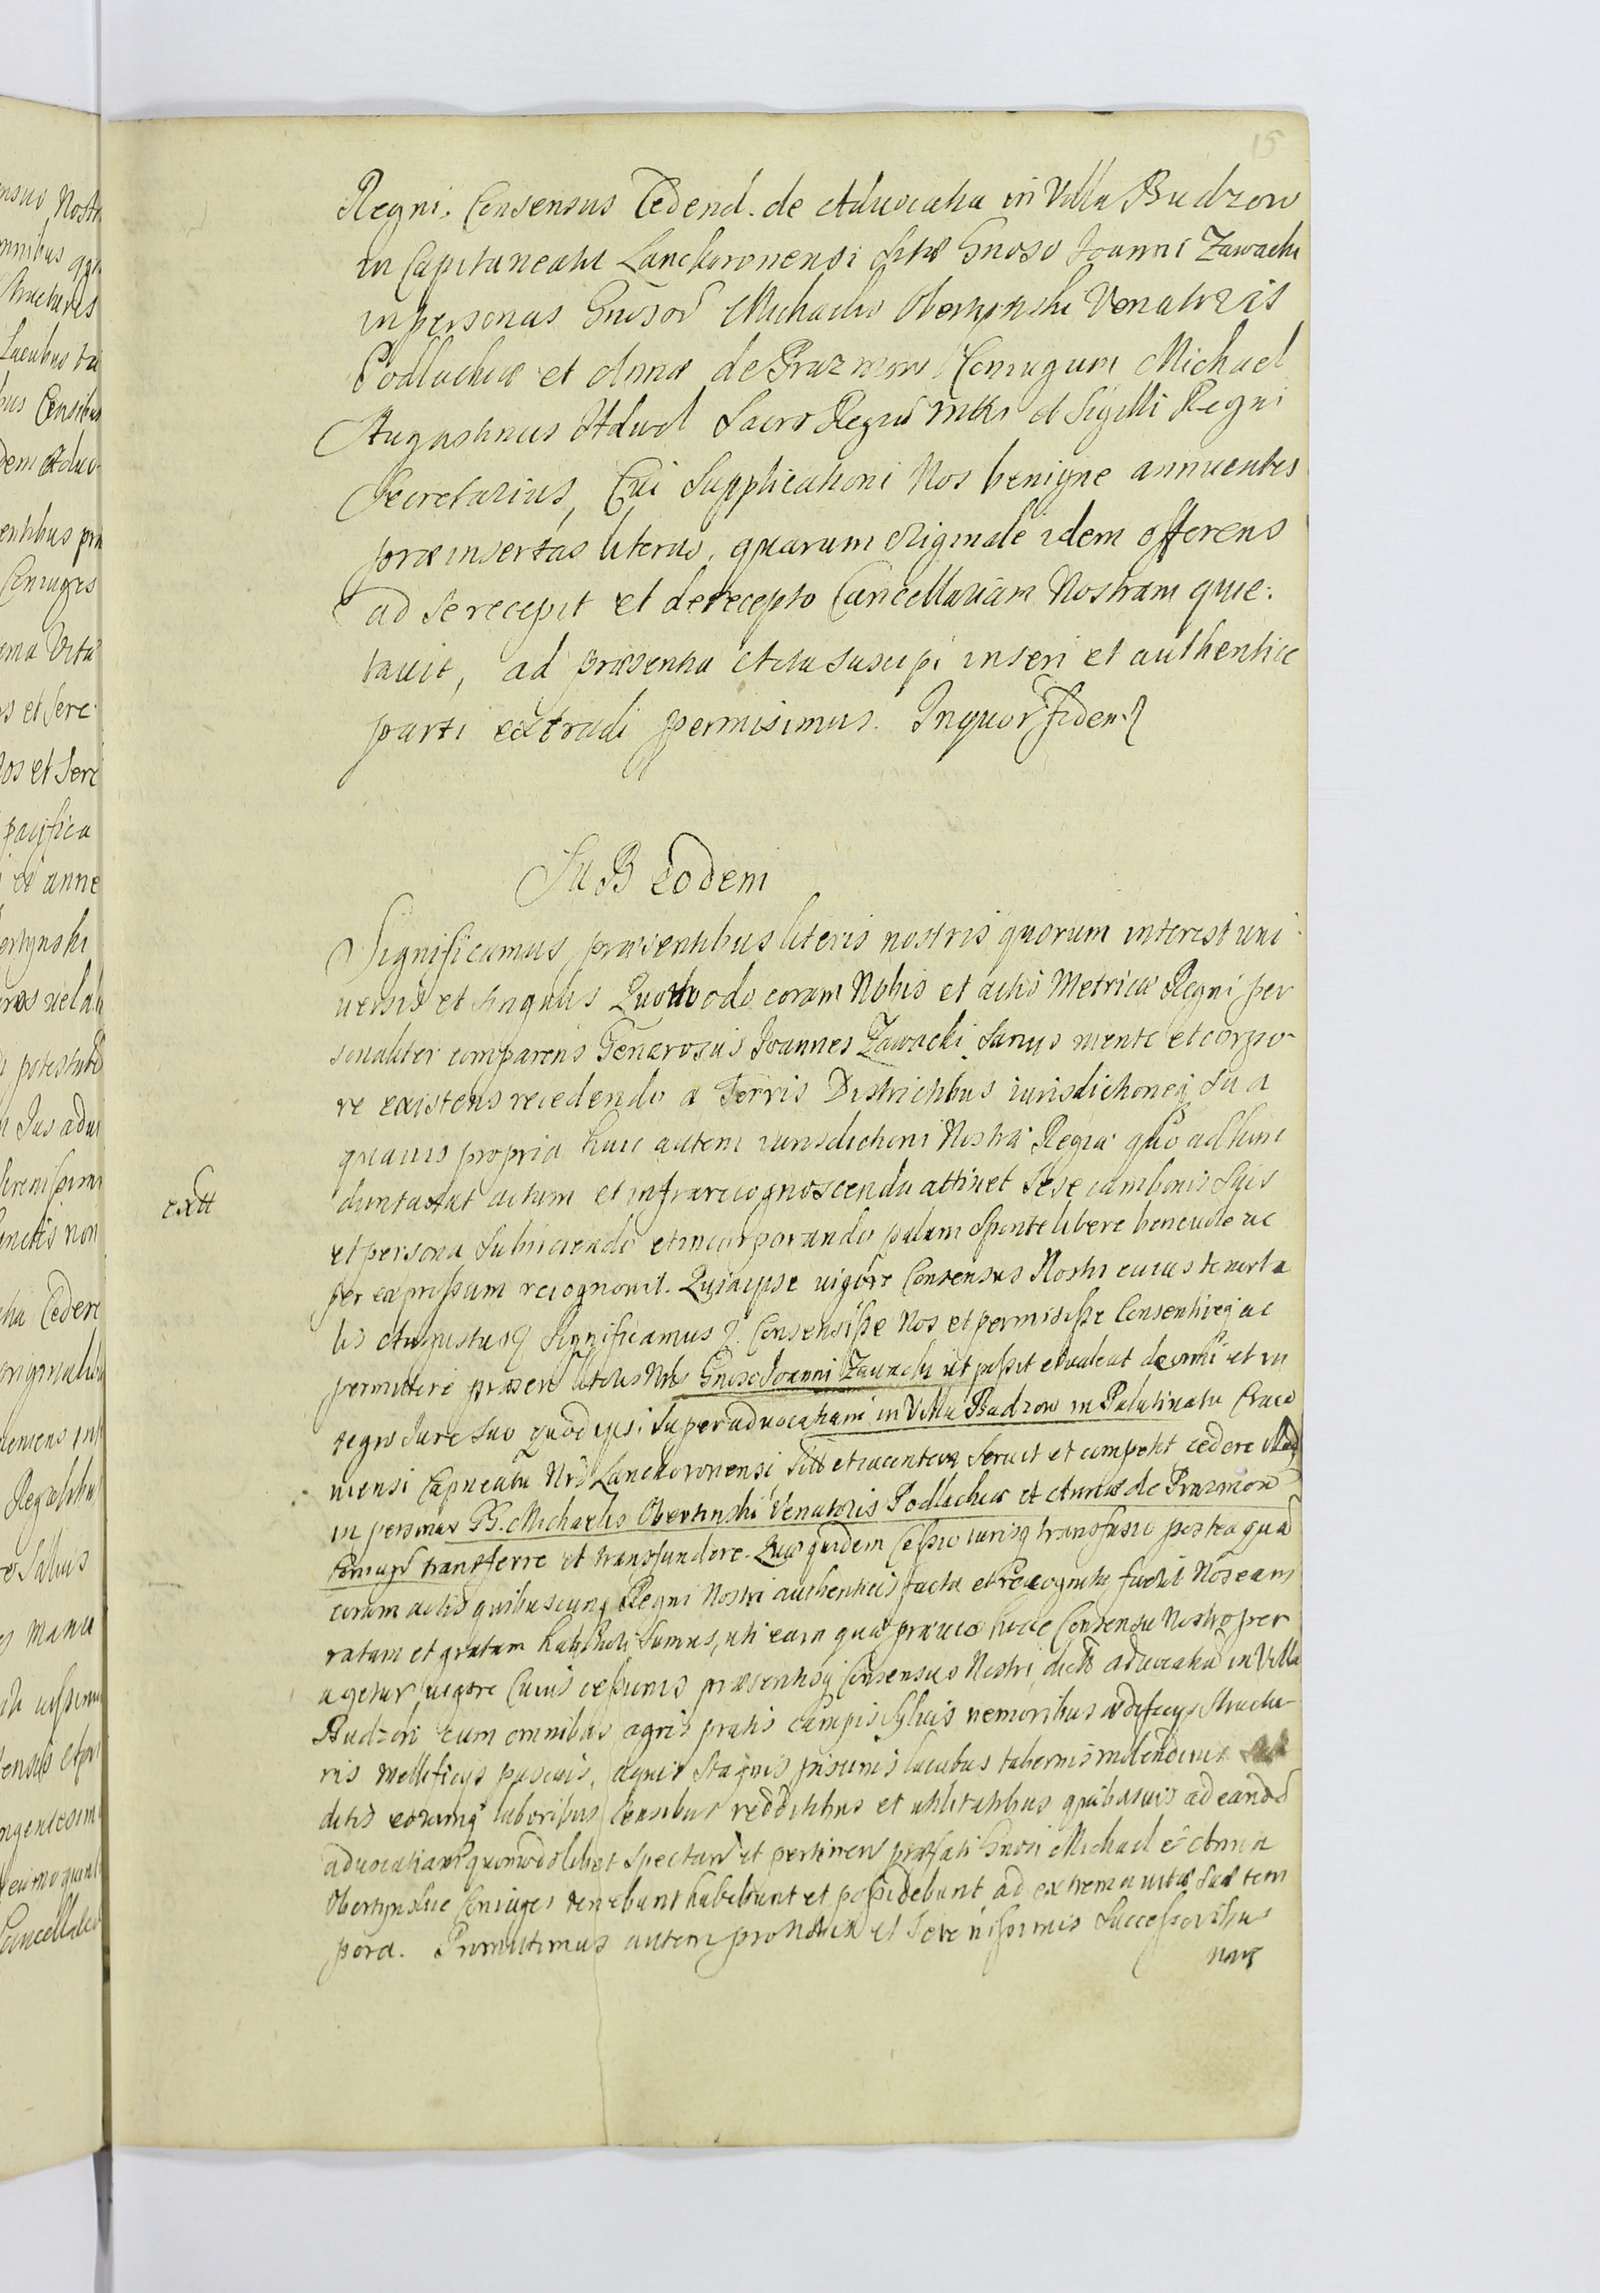 15
Regni. Consensus Cedend. de Aduocatia in Villa Budzow
in Capitaneatu Lanckoronensi sitæ Gnoso Joanni Zawacki
in personas Gnosor Michaelis Obertynski Venatoris
Podlachiæ et Annæ de Prazmow Coniugum Michael
Augustinus Sacræ Regiæ Mttis et Sigilli Regni
Secretarius, Cui Supplicationi Nos benigne annuentes
præinsertas literas, quarum originale idem offerens
ad se recepit et de recepto Cancellariam Nostram quie-
tauit, ad præsentia Acta suscipi inseri et authentice
parti extradi permisimus. In quor fidem
Sub eodem
Significamus præsentibus literis nostris quorum interest uni
uersis et singulis Quomodo coram Nobis et actis Metricæ Regni per
sonaliter comparens Generosus Joannes Zawacki sanus mente et corpo-
re existens recedendo a Terris Districtibus iurisdictioneq sua
quauis propria huic autem iurisdictioni Nostræ Regiæ quo ad hunc
duntaxat actum et infra recognoscenda attinet sese cum bonis suis
extt
et persona subiiciendo et incorporando palam sponte libere beneuole ac
per expressum recognouit. Quia ipse uigore Consensus Nostri cuius tenor ta
lis Augustus Significamus Consensisse Nos et permisisse Consentireq ac
permittere præsen literis Nris Gnoso Joanni Zawacki ut possit et ualeat de omni et in
tegro Jure suo quod ipsi super aduocatiam in Villa Budzow in Palatinatu Craco
uiensi Capneatu Nro Lanckoronensi et iacentem seruit et competit cedere
in personas GG. Michaelis Obertinski Venatoris Podlachiæ et Annæ de Prazmow
Coniugu transferre et transfundere. Quæ quidem Cessio iurisq transfusio postea quã
coram actis quibuscunq Regni Nostri authenticis facta et recognita fuerit Nos eam
ratam et gratam habituri sumus, uti eam quæ præuio hocce Consensu Nostro per
agetur uigore Cuius cessionis præsentisq Consensus Nostri dictã aduocatiã in Villa
Budzow cum omnibus agris pratis campis syluis nemoribus ædificys structu
ris mellificys pascuis, aquis stagnis piscinis lacubus tabernis molendinis
ditis eorumq laboribus Censibus redditibus et utilitatibus quibusuis ad eandẽ
aduocatiam quomodolibet spectan et pertinen præfati Gnosi Michael et Anna
Obertynskie Coniuges tenebunt habebunt et possidebunt ad extrema uitæ suæ tem
pora. Promittimus autem pro Nobis et Serenissimis Successoribus